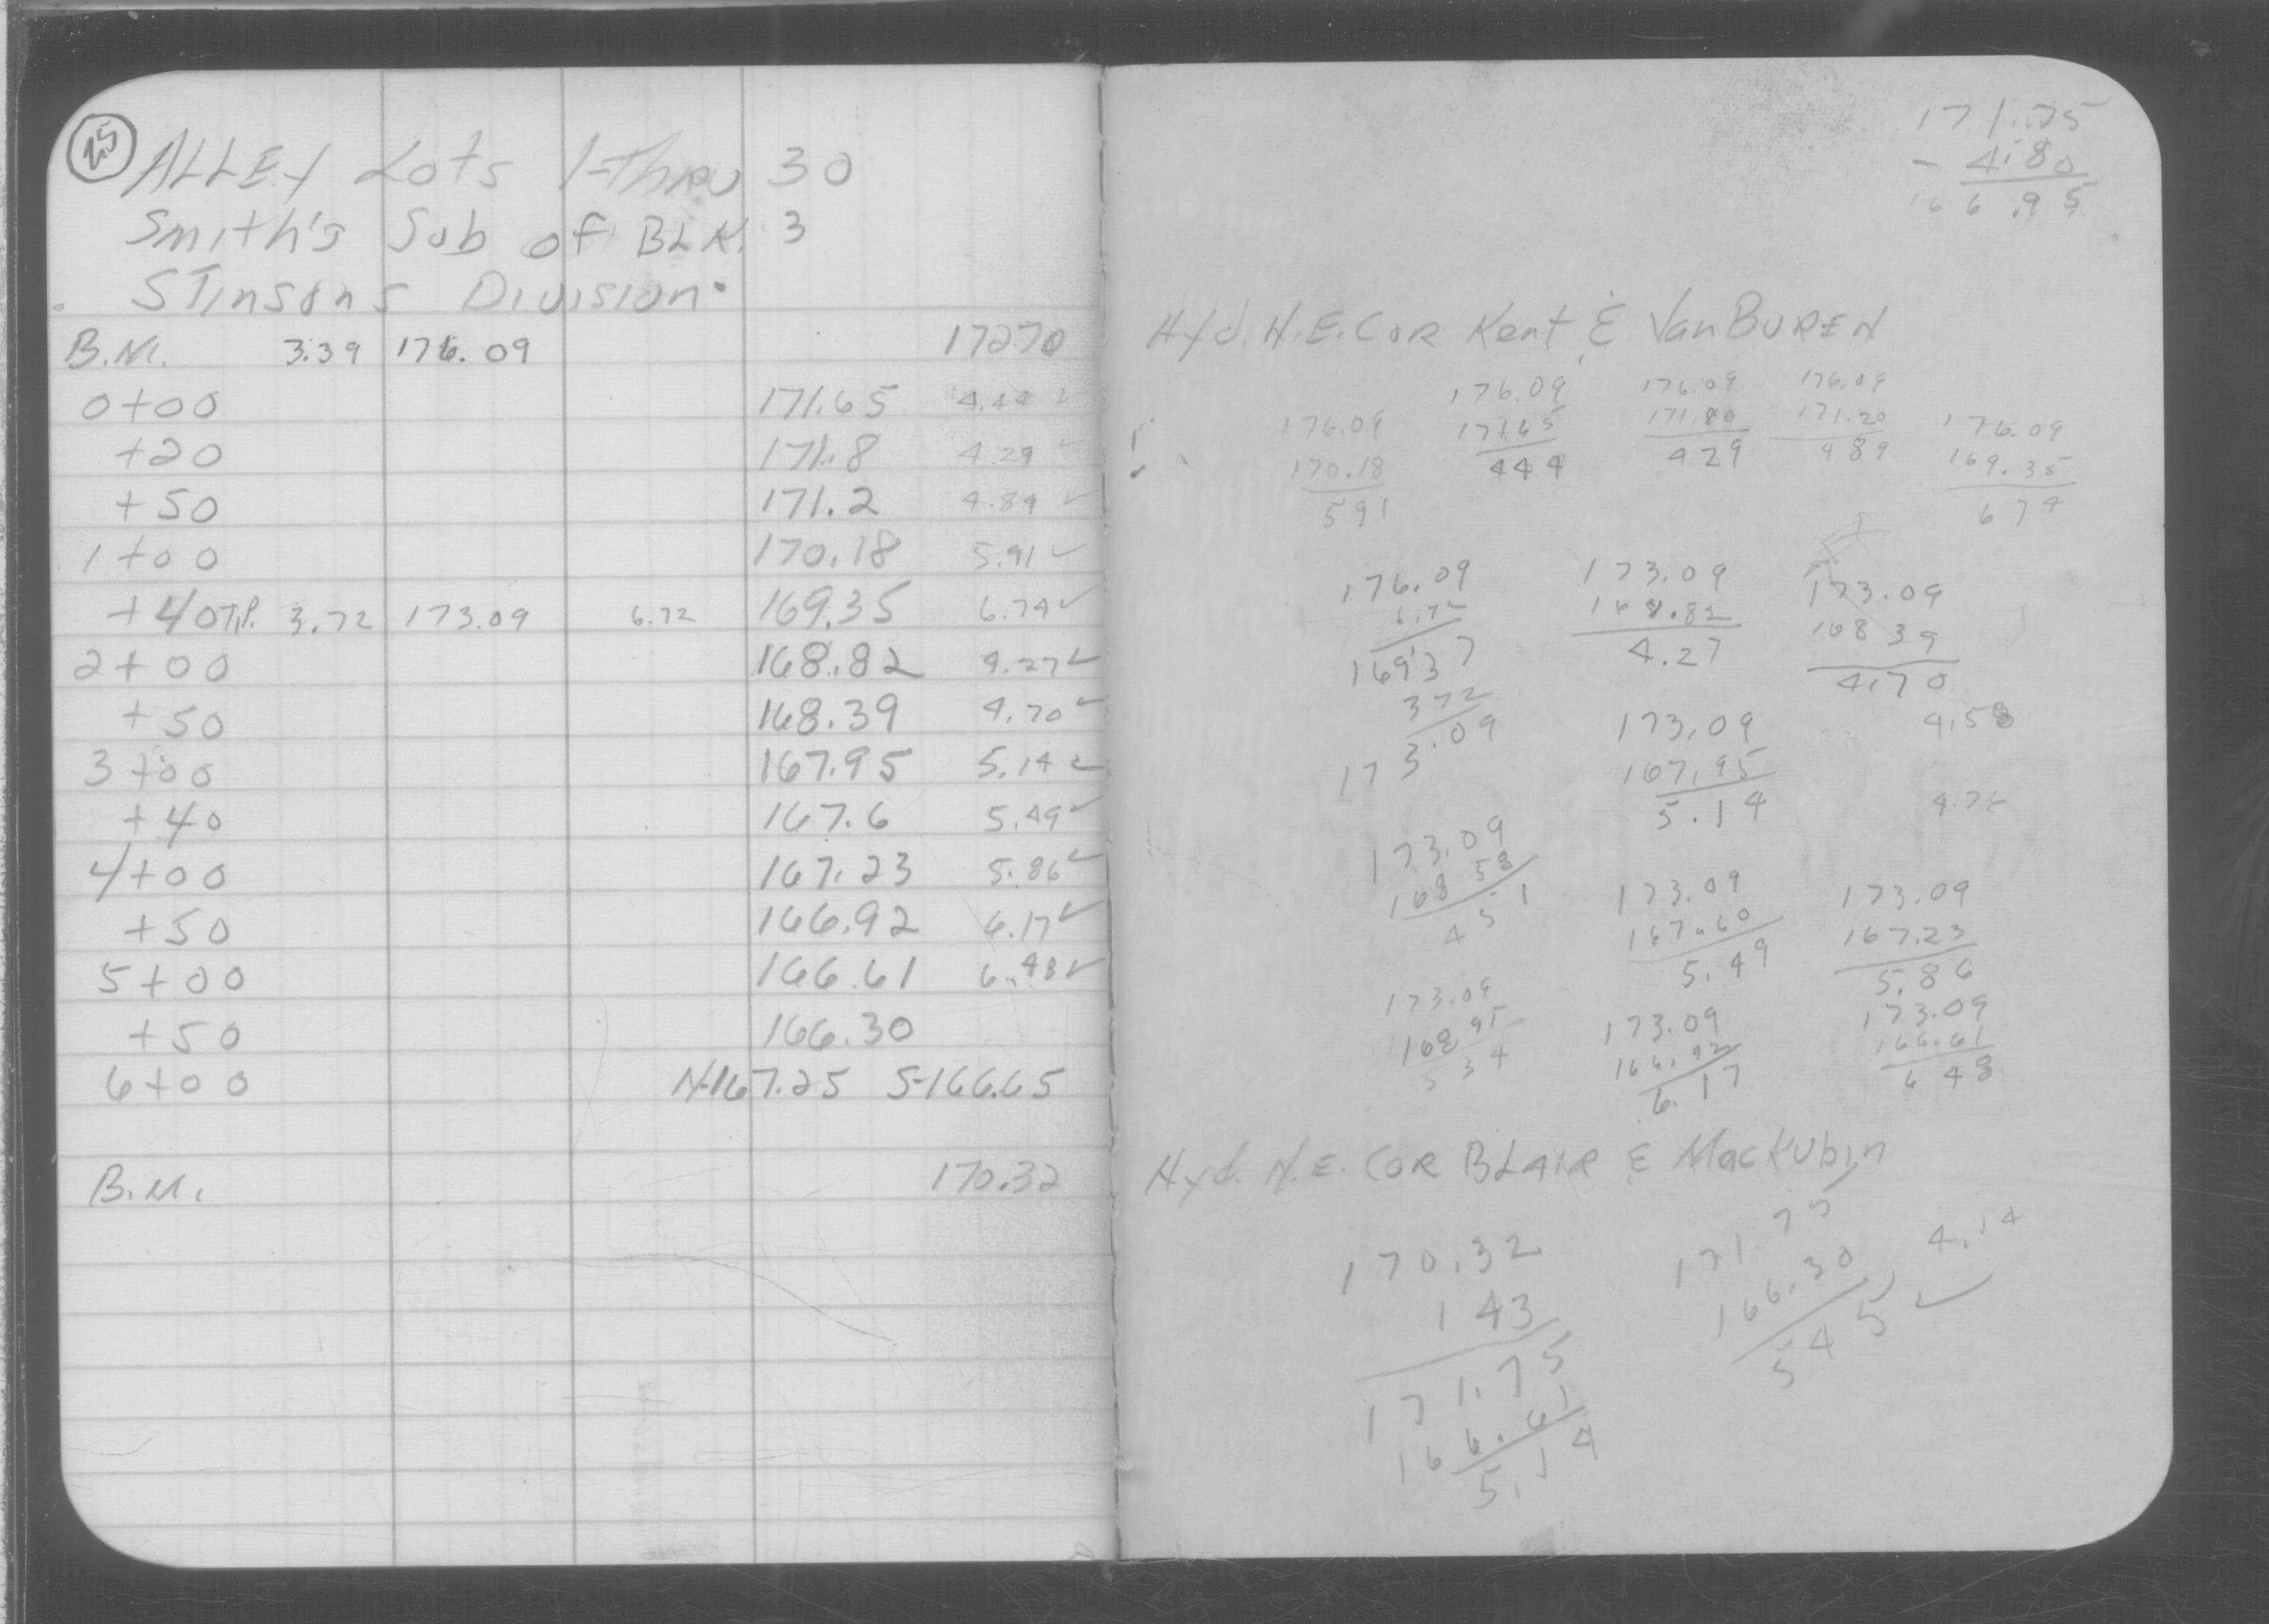 25
ALLEY Lots 1-Thru 30
Smith's Sub of BLK. 3
STinsons Division.
B.M. 3.39 176.09 172.70
0+00 171.65 4.44 ✓
+20 171.8 4.29 ✓
+50 171.2 4.89 ✓
1+00 170.18 5.91 ✓
+40 T.P. 3.72 173.09 6.72 169.35 6.74 ✓
2+00 168.82 4.27 ✓
+50 168.39 4.70 ✓
3+00 167.95 5.14 ✓
+40 167.6 5.49 ✓
4+00 167.23 5.86 ✓
+50 166.92 6.17 ✓
5+00 166.61 6.48 ✓
+50 166.30
6+00 N-167.25 S-166.65
B.M. 170.32
171.75
- 4.80
166.95
Hyd. N.E. COR Kent & Van BUREN
176.09
170.18
591
176.09
171.65
444
176.09
171.80
429
176.09
171.20
489
176.09
169.35
674
176.09
6.72
169.37
372
173.09
173.09
168.82
4.27
173.09
168 39
4.70
173.09
167.95
5.14
4.58
173.09
168 58
4 5 1
173.09
167.60
5.49
173.09
167.23
5.86
173.09
168 95
5 3 4
173.09
166.92
6.17
173.09
166.61
6 48
Hyd. N.E. COR BLAIR & MacKubin
170.32
1 43
171.75
166.61
5.14
171.75
166.30
5 4 5 ✓
4.14